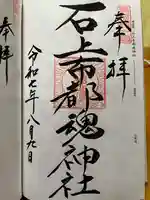 奉拝
石上布都魂神社
令和七年八月九日
奉拝